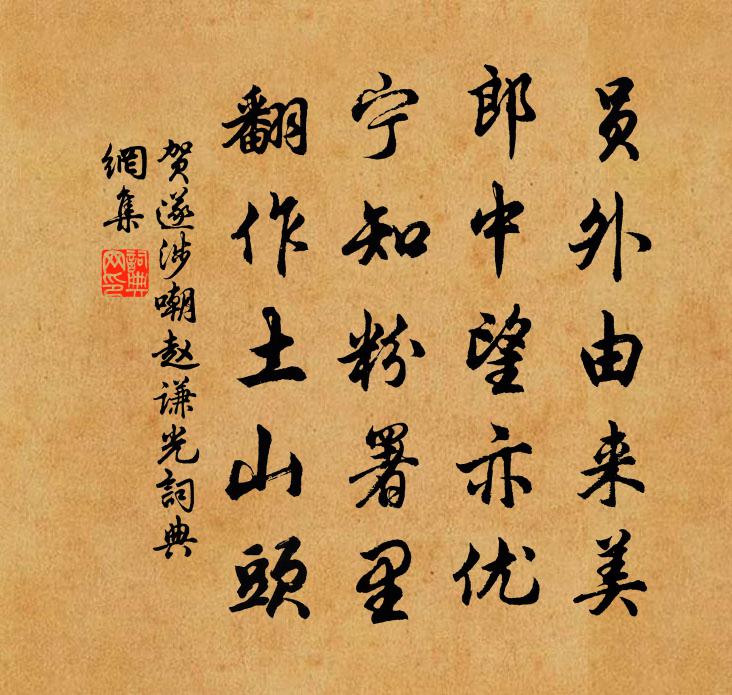 员外由来美
郎中望亦优
宁知粉署里
翻作土山头
贺遂涉嘲赵谦光詞典
網集
詞典
网印